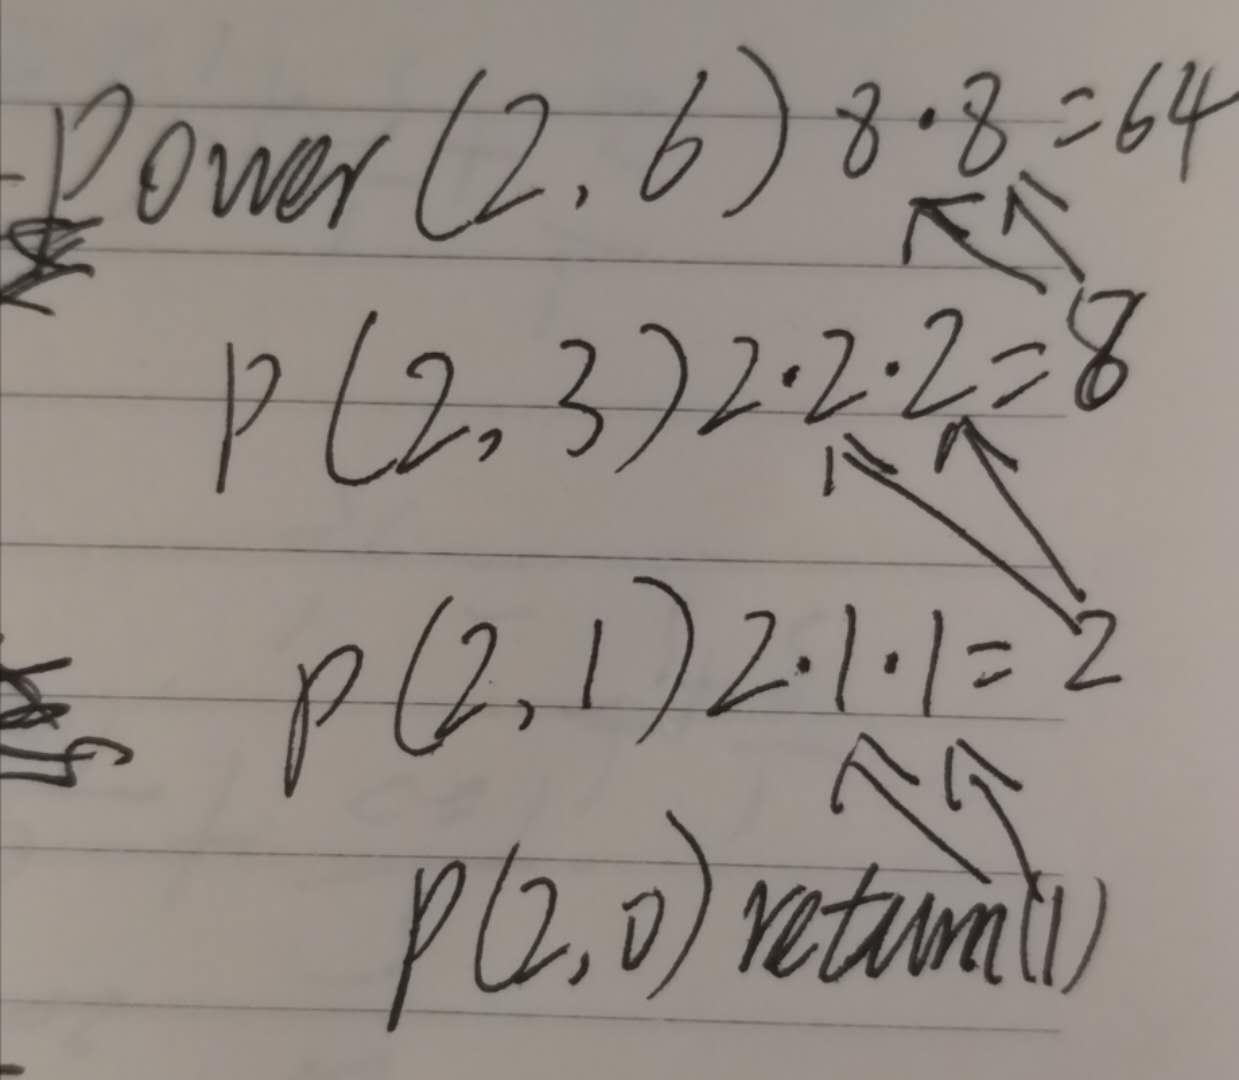 Power(2,6) 8·8=64
P(2,3) 2·2·2=8
P(2,1) 2·1·1=2
P(2,0) return(1)